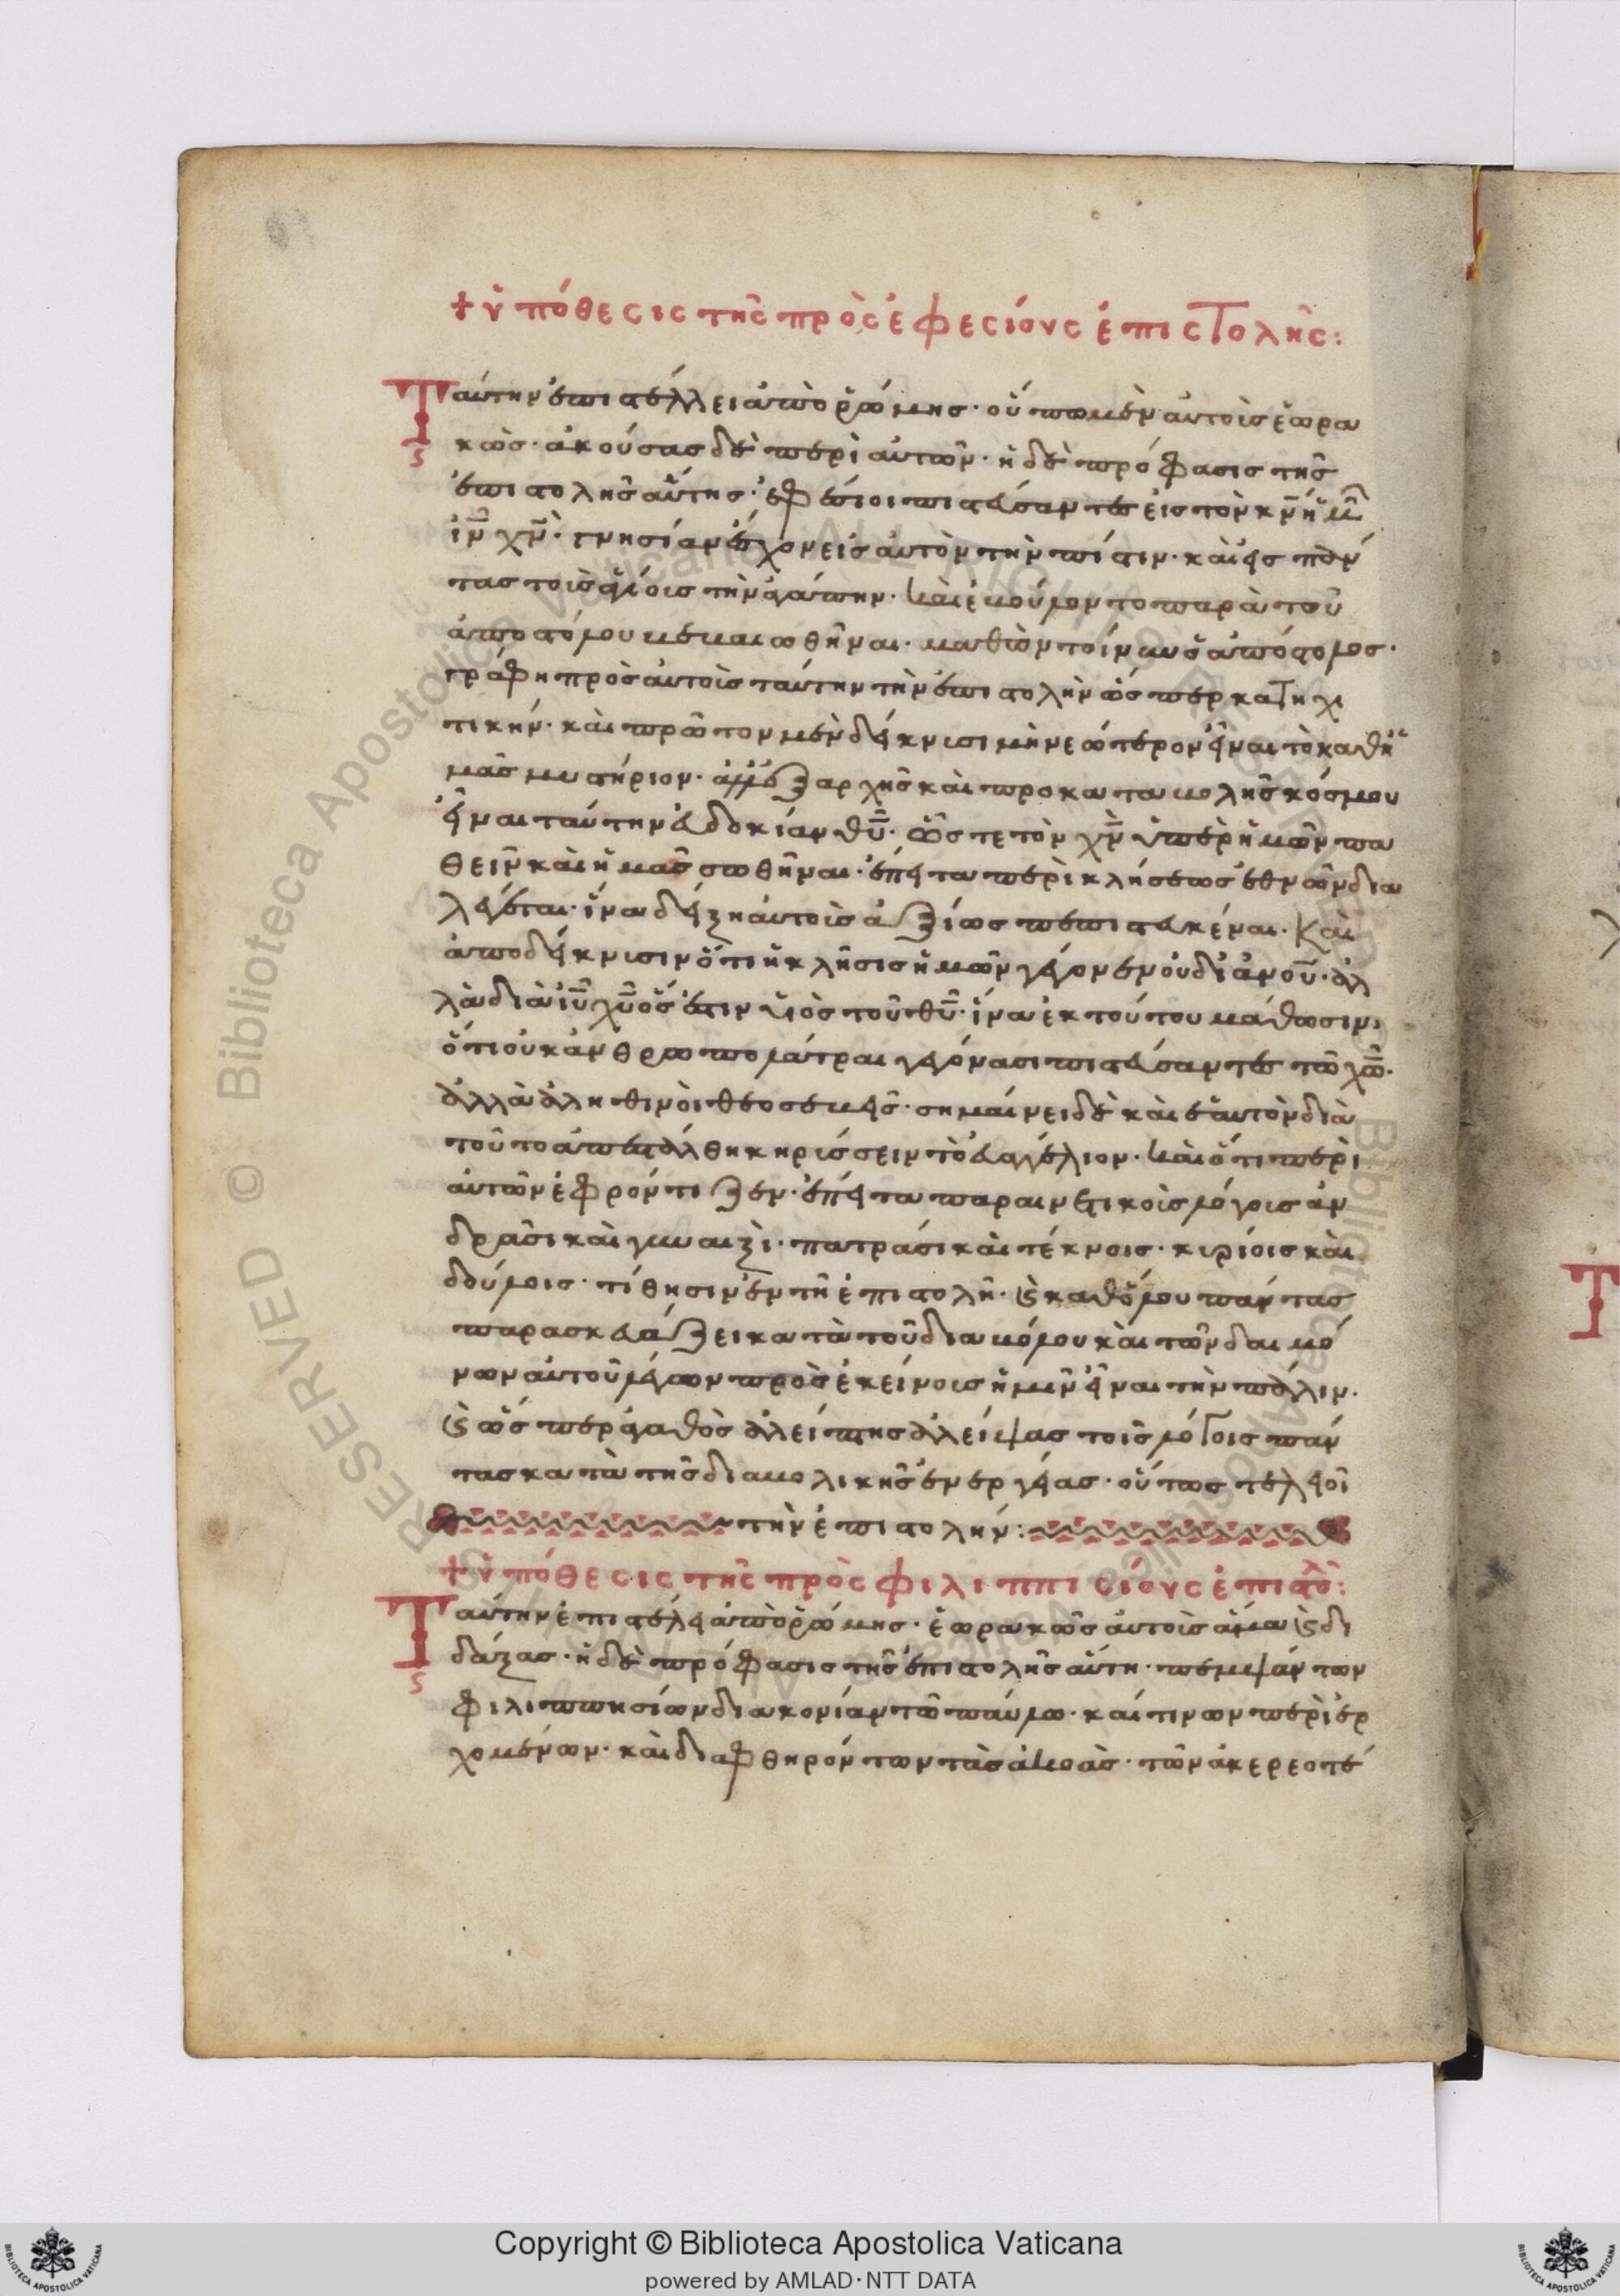 + ὑπόθεσις τῆς πρὸς ἐφεσίους ἐπιστολῆς:
Ταύτην ἐπιστέλλει ἀπὸ ῥώμης· οὔπω μὲν αὐτοῖς ἑωρα
κὼς· ἀκούσας δὲ περὶ αὐτῶν· ἡ δὲ πρόφασις τῆς
ἐπιστολῆς αὕτης· ἐφέσιοι πιστεύσαντες εἰς τὸν κν̄ ἡμῶ
ἰν̄ χν̄· γνησίαν ἔσχον εἰς αὐτὸν τὴν πίστιν· καὶ εἰς πάν
τας τοῖς ἁγίοις τὴν ἀγάπην· καὶ ἐβούλοντο παρὰ τοῦ
ἀποστόλου βεβαιωθῆναι· μαθὼν τοίνυν ὁ ἀπόστολος·
γράφη πρὸς αὐτοῖς ταύτην τὴν ἐπιστολὴν ὥσπερ κατηχι
τικήν· καὶ πρῶτον μὲν δείκνυσι μὴ νεώτερον εἶναι τὸ καθ' ἡ
μᾶς μυστήριον· ἀλλ' ἐξαρχῆς καὶ προ καταβολῆς κόσμου
εἶναι ταύτην εὐδοκίαν θῦ· ὥστε τὸν χν̄ ὑπὲρ ἡμῶν πα
θεῖν καὶ ἡμᾶς σωθῆναι· ἔπειτα περὶ κλήσεως ἐθνῶν δια
λέγεται· ἵνα δείξη αὐτοῖς ἀξίως πεπιστευκέναι· καὶ
ἀποδείκνυσιν ὅτι ἡ κλῆσις ἡμῶν γέγονεν οὐ δι' ἀνοῦ· ἀλ
λὰ διὰ ἰῦ χῦ ὅς ἐστιν υἱὸς τοῦ θῦ· ἵνα ἐκ τούτου μάθωσιν
ὅτι οὐκ ἀνθρωπολάτραι γεγόνασι πιστεύσαντες τῶ χῶ·
ἀλλὰ ἀληθινοὶ θεοσεβεῖς· σημαίνει δὲ καὶ ἑαυτὸν διὰ
τοῦτο ἀπεστάλθη κηρύσσειν τὸ εὐαγγέλιον· καὶ ὅτι περὶ
αὐτῶν ἐφρόντιζεν· ἔπειτα παραινετικοῖς λόγοις ἀν
δράσι καὶ γυναιξὶ· πατράσι καὶ τέκνοις· κυρίοις καὶ
δούλοις· τίθησιν ἐν τῆ ἐπιστολῆ· ϗ καθόλου πάντας
παρασκευάζει κατὰ τοῦ διαβόλου καὶ τῶν δαιμό
νων αὐτοῦ λέγων πρὸς ἐκείνοις ἡμῖν εἶναι τὴν πάλιν·
ϗ ὥσπερ ἀγαθὸς ἀλείπτης ἀλείψας τοῖς λόγοις πάν
τας κατὰ τῆς διαβολικῆς ἐνεργείας· οὕτως τελειοῖ
τὴν ἐπιστολήν:
+ ὑπόθεσις τῆς πρὸς φιλιππισίους ἐπιστολ:
Ταύτην ἐπιστέλλει ἀπὸ ῥώμης· ἑωρακὼς αὐτοῖς ἅμα ϗ δι
δάξας· ἡ δὲ πρόφασις τῆς ἐπιστολῆς αὕτη· πέμψάν των
φιλιππησίων διακονίαν τῶ παύλω· καί τινων περὶ ἐρ
χομένων· καὶ διαφθηρόντων τὰς ἀκοὰς· τῶν ἀκερεοτέ